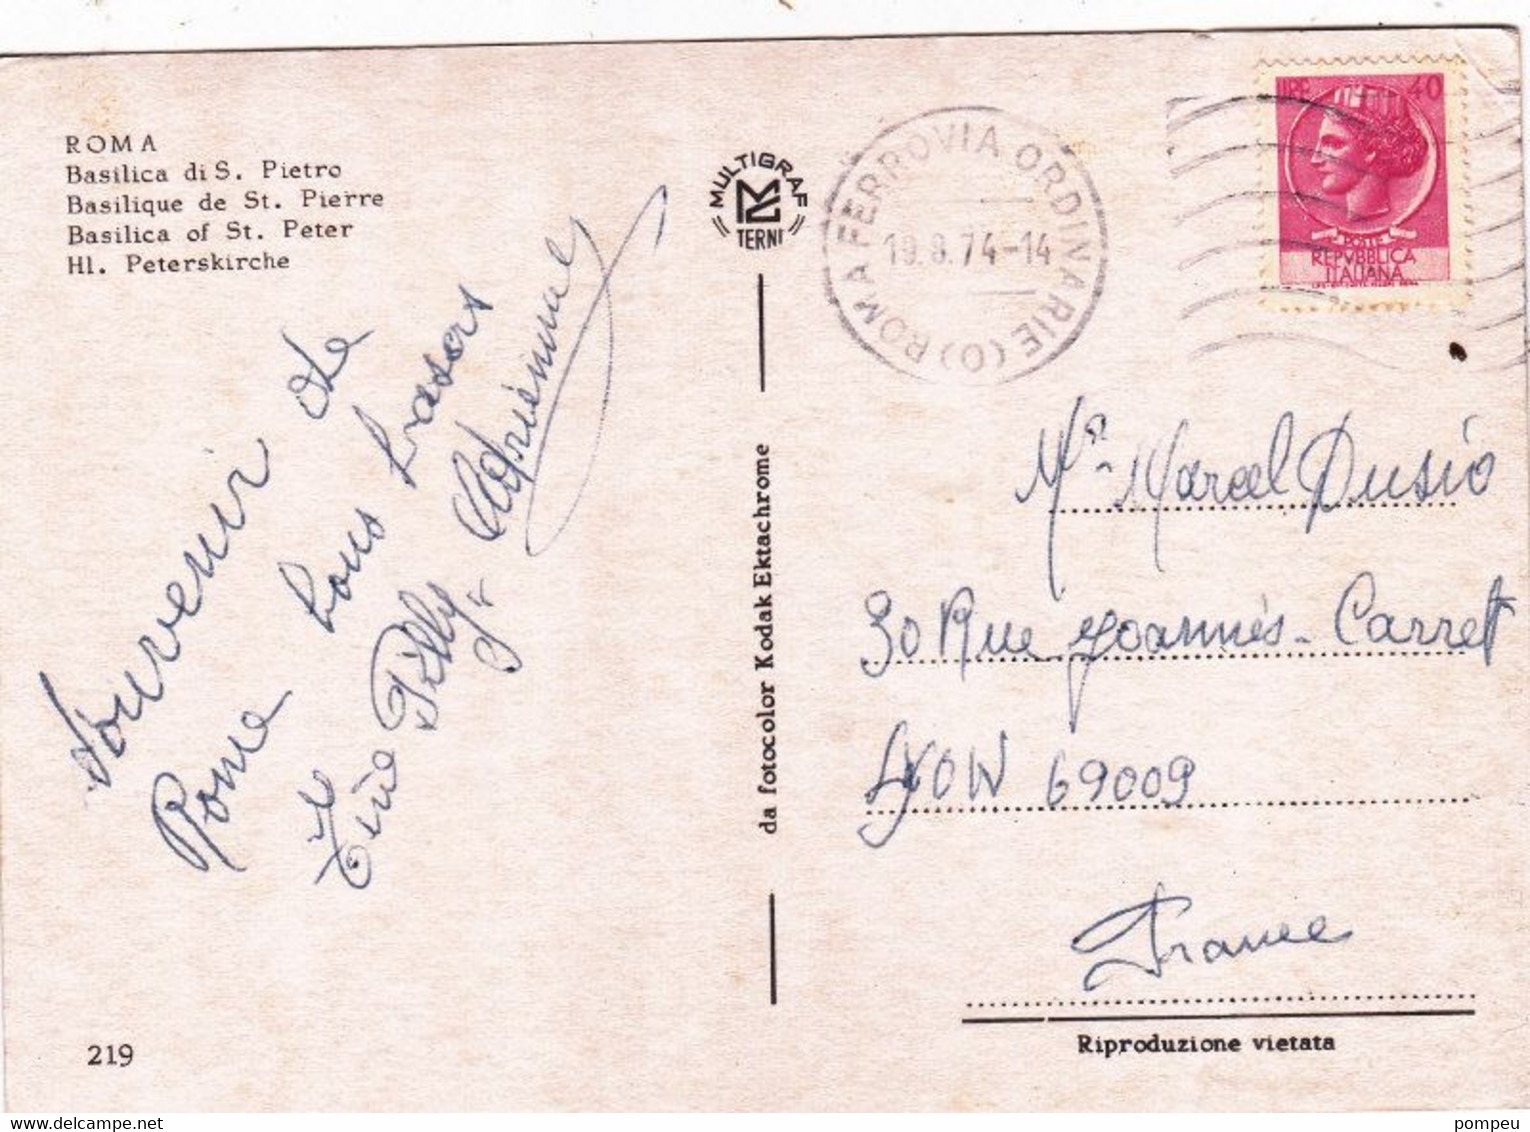 ROMA
Basilica di S. Pietro
Basilique de St. Pierre
Basilica of St. Peter
Hl. Peterskirche
Souvenir de
Rome bons baisers
Tilly
219
MULTIGRAF
TERNI
da fotocolor Kodak Ektachrome
ROMA FERROVIA ORDINARIE (O)
19.8.74-14
LIRE 40
POSTE
REPVBBLICA
ITALIANA
Mr Marcel Dusio
30 Rue Joannès-Carret
LYON 69009
France
Riproduzione vietata
pompeu